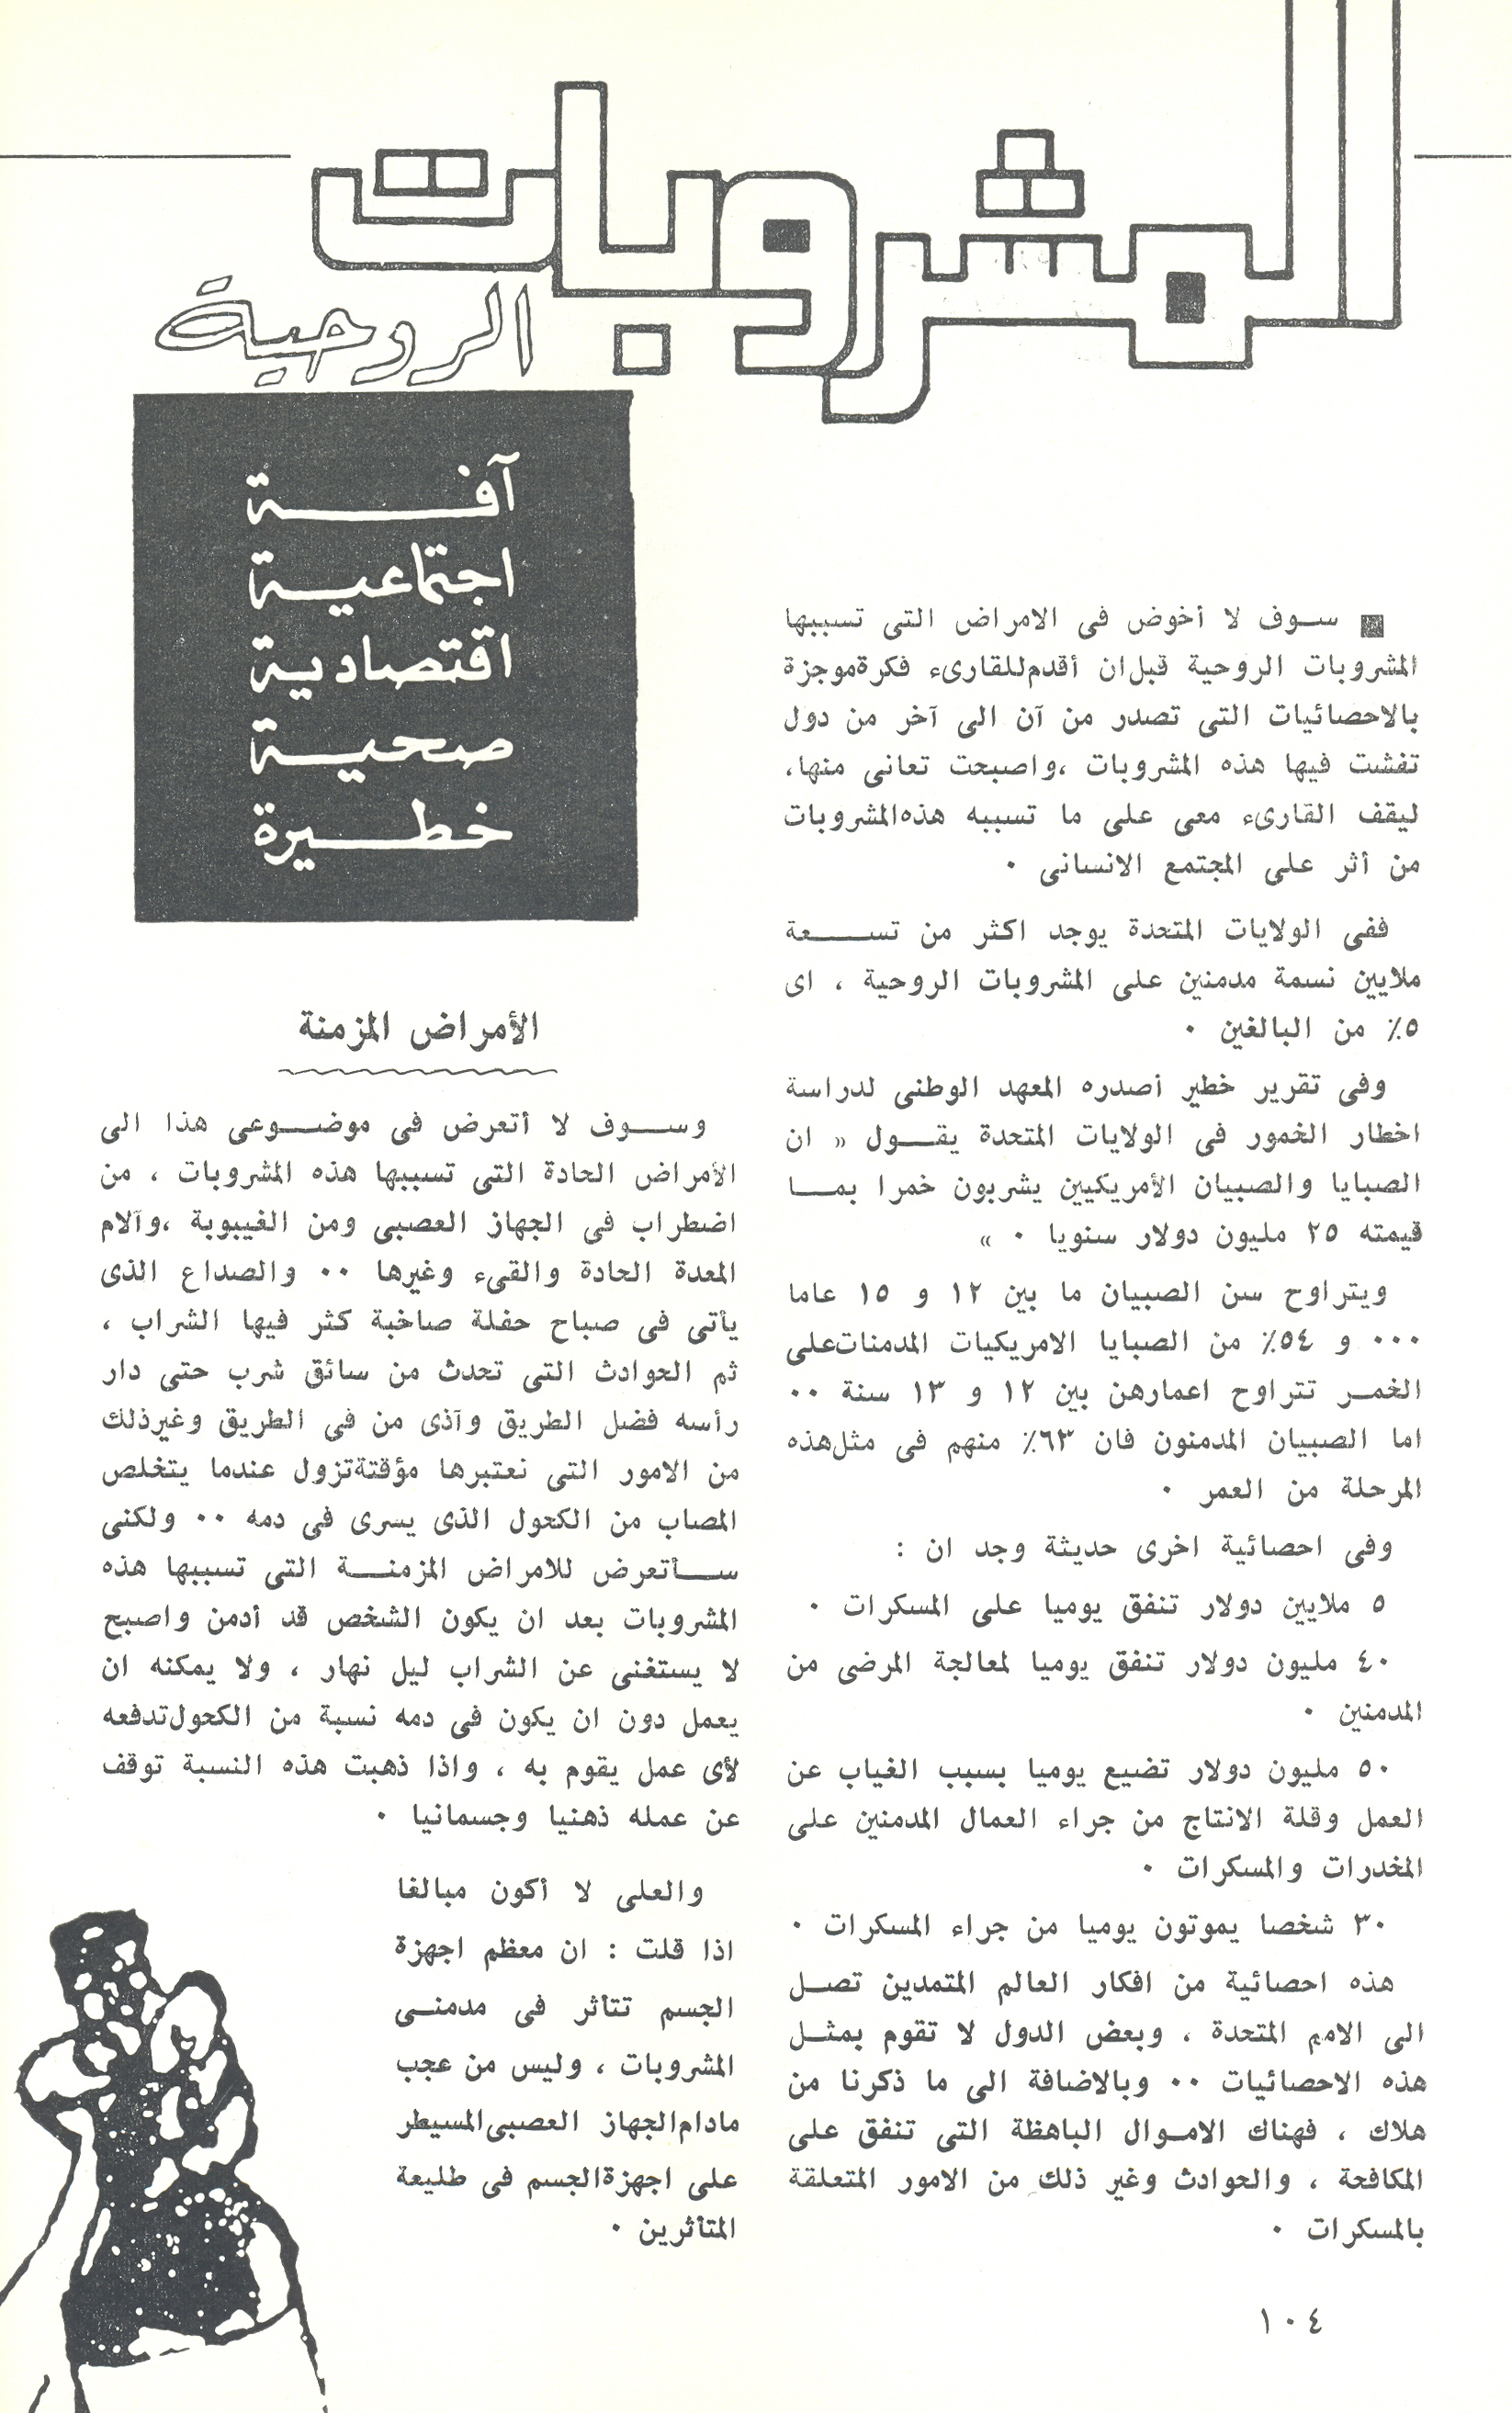 المشروبات
الروحية
آفة
اجتماعية
اقتصادية
صحية
خطيرة
سوف لا أخوض فى الامراض التى تسببها
المشروبات الروحية قبل ان أقدم للقارىء فكرة موجزة
بالاحصائيات التى تصدر من آن الى آخر من دول
تفشت فيها هذه المشروبات ،واصبحت تعانى منها،
ليقف القارىء معى على ما تسببه هذه المشروبات
من أثر على المجتمع الانسانى ٠
ففى الولايات المتحدة يوجد اكثر من تسعة
ملايين نسمة مدمنين على المشروبات الروحية ، اى
٥٪ من البالغين ٠
وفى تقرير خطير أصدره المعهد الوطنى لدراسة
اخطار الخمور فى الولايات المتحدة يقول « ان
الصبايا والصبيان الأمريكيين يشربون خمرا بما
قيمته ٢٥ مليون دولار سنويا ٠ »
ويتراوح سن الصبيان ما بين ١٢ و ١٥ عاما
٠٠٠ و ٥٤٪ من الصبايا الامريكيات المدمنات على
الخمر تتراوح اعمارهن بين ١٢ و ١٣ سنة ٠٠
اما الصبيان المدمنون فان ٦٣٪ منهم فى مثل هذه
المرحلة من العمر ٠
وفى احصائية اخرى حديثة وجد ان :
٥ ملايين دولار تنفق يوميا على المسكرات ٠
٤٠ مليون دولار تنفق يوميا لمعالجة المرضى من
المدمنين ٠
٥٠ مليون دولار تضيع يوميا بسبب الغياب عن
العمل وقلة الانتاج من جراء العمال المدمنين على
المخدرات والمسكرات ٠
٣٠ شخصا يموتون يوميا من جراء المسكرات ٠
هذه احصائية من افكار العالم المتمدين تصل
الى الامم المتحدة ، وبعض الدول لا تقوم بمثل
هذه الاحصائيات ٠٠ وبالاضافة الى ما ذكرنا من
هلاك ، فهناك الاموال الباهظة التى تنفق على
المكافحة ، والحوادث وغير ذلك من الامور المتعلقة
بالمسكرات ٠
الأمراض المزمنة
وسوف لا أتعرض فى موضوعى هذا الى
الأمراض الحادة التى تسببها هذه المشروبات ، من
اضطراب فى الجهاز العصبى ومن الغيبوبة ،وآلام
المعدة الحادة والقىء وغيرها ٠٠ والصداع الذى
يأتى فى صباح حفلة صاخبة كثر فيها الشراب ،
ثم الحوادث التى تحدث من سائق شرب حتى دار
رأسه فضل الطريق وآذى من فى الطريق وغير ذلك
من الامور التى نعتبرها مؤقتة تزول عندما يتخلص
المصاب من الكحول الذى يسرى فى دمه ٠٠ ولكنى
سأتعرض للامراض المزمنة التى تسببها هذه
المشروبات بعد ان يكون الشخص قد أدمن واصبح
لا يستغنى عن الشراب ليل نهار ، ولا يمكنه ان
يعمل دون ان يكون فى دمه نسبة من الكحول تدفعه
لأى عمل يقوم به ، واذا ذهبت هذه النسبة توقف
عن عمله ذهنيا وجسمانيا ٠
والعلى لا أكون مبالغا
اذا قلت : ان معظم اجهزة
الجسم تتأثر فى مدمنى
المشروبات ، وليس من عجب
مادام الجهاز العصبى المسيطر
على اجهزة الجسم فى طليعة
المتأثرين ٠
١٠٤